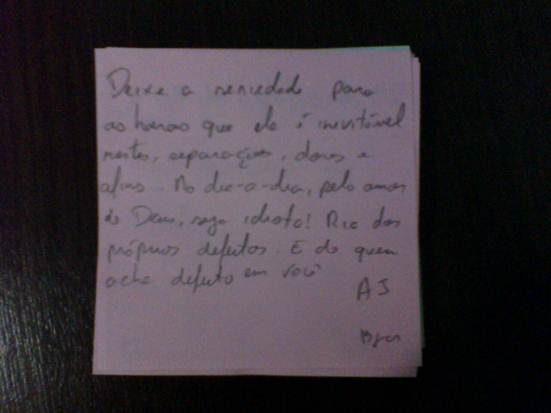 Deixe a seriedade para
as horas que ela é inevitável
mortes, separações, dores e
afins. No dia-a-dia, pelo amor
de Deus, seja idiota! Ria dos
próprios defeitos. E de quem
acha defeito em você
AJ
Bjos